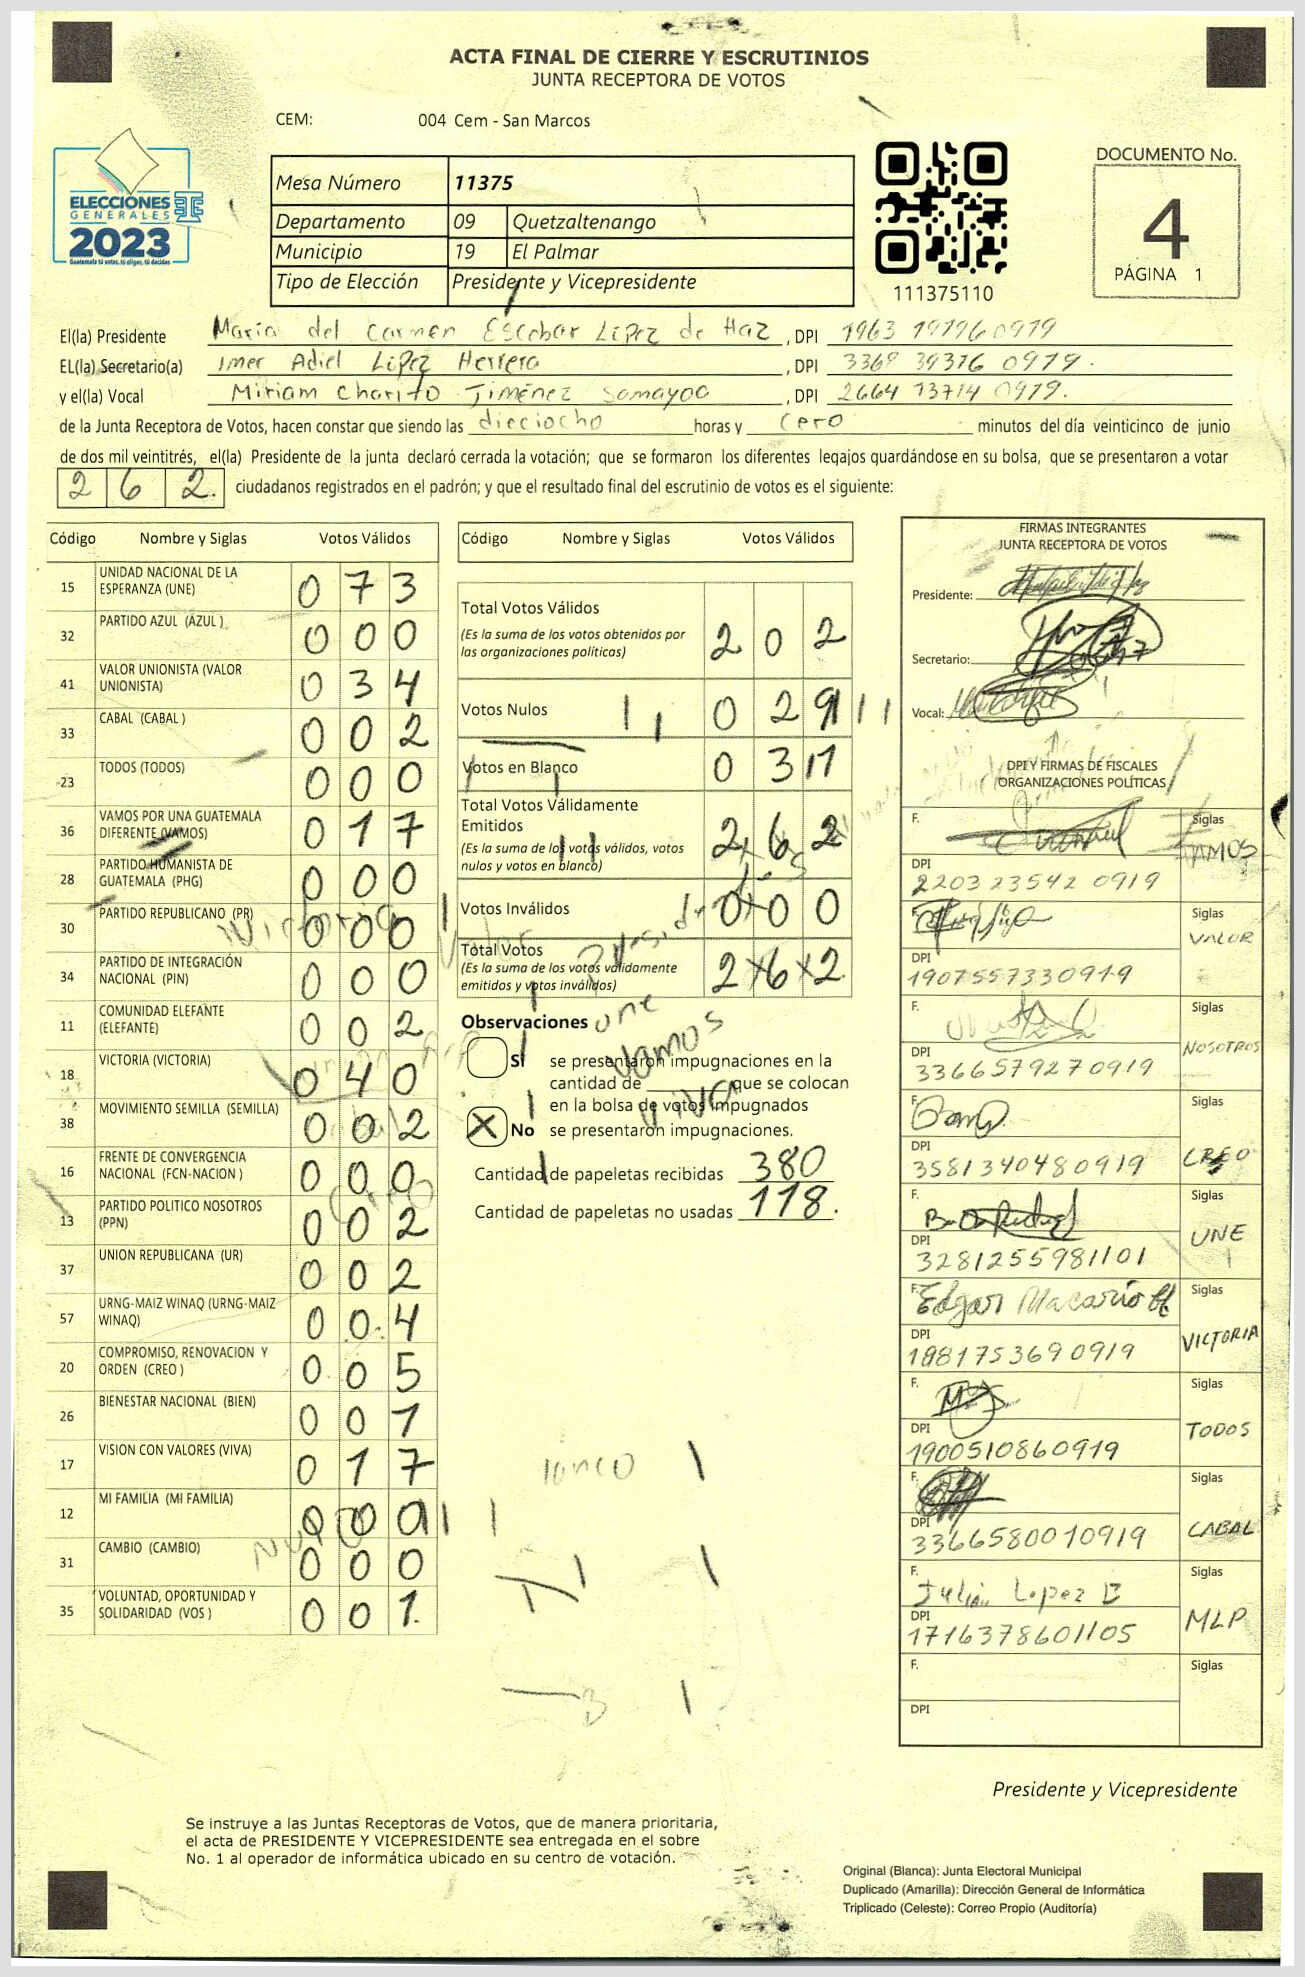 ACTA FINAL DE CIERRE Y ESCRUTINIOS
JUNTA RECEPTORA DE VOTOS
CEM: 004 Cem - San Marcos
ELECCIONES
GENERALES
2023
Guatemala tú votas, tú eliges, tú decides
Mesa Número 11375
Departamento 09 Quetzaltenango
Municipio 19 El Palmar
Tipo de Elección Presidente y Vicepresidente
111375110
DOCUMENTO No.
4
PÁGINA 1
El(la) Presidente Maria del Carmen Escobar López de Haz, DPI 1963 19796 0919
EL(la) Secretario(a) Imer Adiel López Herrera, DPI 3368 39376 0919.
y el(la) Vocal Miriam Charito Jiménez Samayoa, DPI 2664 13714 0919.
de la Junta Receptora de Votos, hacen constar que siendo las dieciocho horas y cero minutos del día veinticinco de junio
de dos mil veintitrés, el(la) Presidente de la junta declaró cerrada la votación; que se formaron los diferentes legajos guardándose en su bolsa, que se presentaron a votar
262. ciudadanos registrados en el padrón; y que el resultado final del escrutinio de votos es el siguiente:
Código Nombre y Siglas Votos Válidos
15 UNIDAD NACIONAL DE LA ESPERANZA (UNE) 073
32 PARTIDO AZUL (AZUL ) 000
41 VALOR UNIONISTA (VALOR UNIONISTA) 034
33 CABAL (CABAL ) 002
23 TODOS (TODOS) 000
36 VAMOS POR UNA GUATEMALA DIFERENTE (VAMOS) 017
28 PARTIDO HUMANISTA DE GUATEMALA (PHG) 000
30 PARTIDO REPUBLICANO (PR) 000
34 PARTIDO DE INTEGRACIÓN NACIONAL (PIN) 000
11 COMUNIDAD ELEFANTE (ELEFANTE) 002
18 VICTORIA (VICTORIA) 040
38 MOVIMIENTO SEMILLA (SEMILLA) 002
16 FRENTE DE CONVERGENCIA NACIONAL (FCN-NACION ) 000
13 PARTIDO POLITICO NOSOTROS (PPN) 002
37 UNION REPUBLICANA (UR) 002
57 URNG-MAIZ WINAQ (URNG-MAIZ WINAQ) 004
20 COMPROMISO, RENOVACION Y ORDEN (CREO ) 005
26 BIENESTAR NACIONAL (BIEN) 001
17 VISION CON VALORES (VIVA) 017
12 MI FAMILIA (MI FAMILIA) 000
31 CAMBIO (CAMBIO) 000
35 VOLUNTAD, OPORTUNIDAD Y SOLIDARIDAD (VOS ) 001.
Código Nombre y Siglas Votos Válidos
Total Votos Válidos 202
(Es la suma de los votos obtenidos por
las organizaciones políticas)
Votos Nulos 029
Votos en Blanco 031
Total Votos Válidamente
Emitidos 262
(Es la suma de los votos válidos, votos
nulos y votos en blanco)
Votos Inválidos 000
Total Votos 262
(Es la suma de los votos válidamente
emitidos y votos inválidos)
Observaciones
une
vamos
viva
SI se presentaron impugnaciones en la
cantidad de ________ que se colocan
en la bolsa de votos impugnados
X No se presentaron impugnaciones.
Cantidad de papeletas recibidas 380
Cantidad de papeletas no usadas 118.
FIRMAS INTEGRANTES
JUNTA RECEPTORA DE VOTOS
Presidente:
Secretario:
Vocal:
DPI Y FIRMAS DE FISCALES
ORGANIZACIONES POLÍTICAS
F. Siglas VAMOS
DPI 2203 23542 0919
F. Siglas VALOR
DPI 1907557330919
F. Siglas NOSOTROS
DPI 3366579270919
F. Siglas CREO
DPI 3581340480919
F. Siglas UNE
DPI 3281255981101
F. Edgar Macario Siglas VICTORIA
DPI 1981753690919
F. Siglas TODOS
DPI 1900510860919
F. Siglas CABAL
DPI 3366580010919
F. Julian Lopez Siglas MLP
DPI 1716378601105
F. Siglas
DPI
Presidente y Vicepresidente
Se instruye a las Juntas Receptoras de Votos, que de manera prioritaria,
el acta de PRESIDENTE Y VICEPRESIDENTE sea entregada en el sobre
No. 1 al operador de informática ubicado en su centro de votación.
Original (Blanca): Junta Electoral Municipal
Duplicado (Amarilla): Dirección General de Informática
Triplicado (Celeste): Correo Propio (Auditoría)